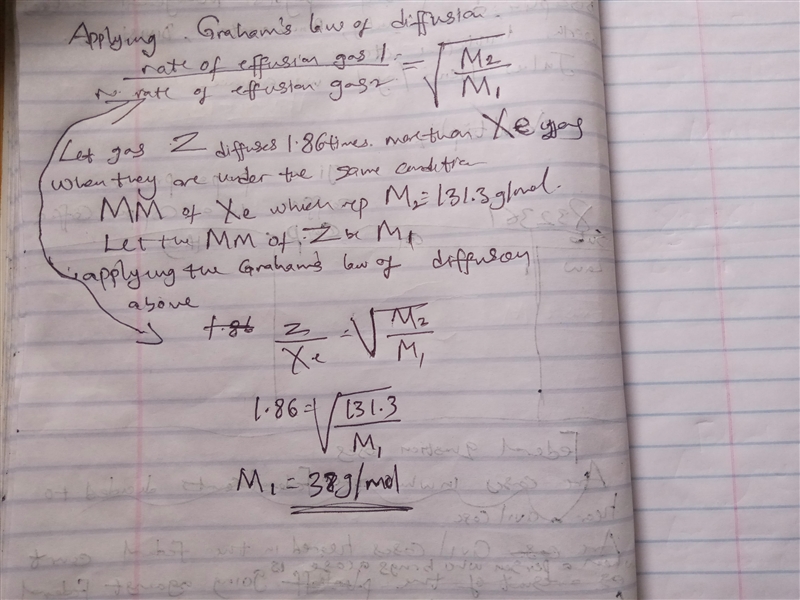 Applying Graham's law of diffusion.
rate of effusion gas 1 = √M2
rate of effusion gas 2 M1
Let gas Z diffuses 1.86 times more than Xe gas
when they are under the same condition
MM of Xe which rep M2 = 131.3 g/mol.
Let the MM of Z be M1
applying the Graham's law of diffusion
above
1.86 Z/Xe = √M2/M1
1.86 = √131.3/M1
M1 = 38g/mol